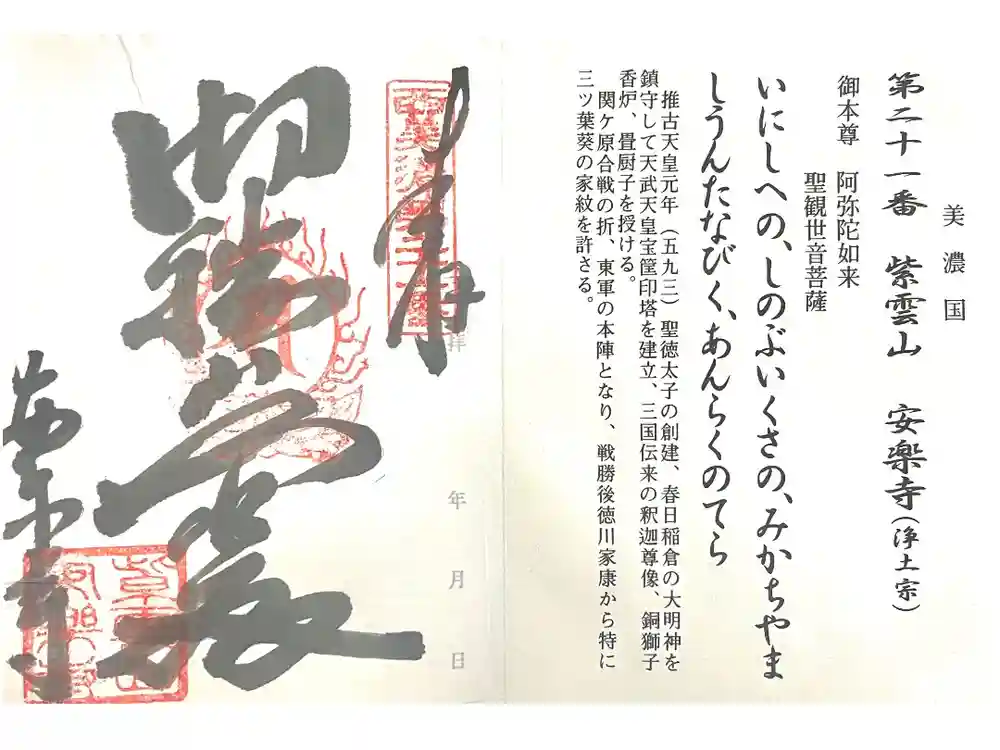 美濃国
第二十一番 紫雲山 安楽寺(浄土宗)
御本尊 阿弥陀如来
聖観世音菩薩
いにしへの、しのぶいくさの、みかちやま
しうんたなびく、あんらくのてら
推古天皇元年(五九三)聖徳太子の創建、春日稲倉の大明神を
鎮守して天武天皇宝筐印塔を建立、三国伝来の釈迦尊像、銅獅子
香炉、畳厨子を授ける。
関ケ原合戦の折、東軍の本陣となり、戦勝後徳川家康から特に
三ツ葉葵の家紋を許さる。
奉拝
年月日
安楽寺